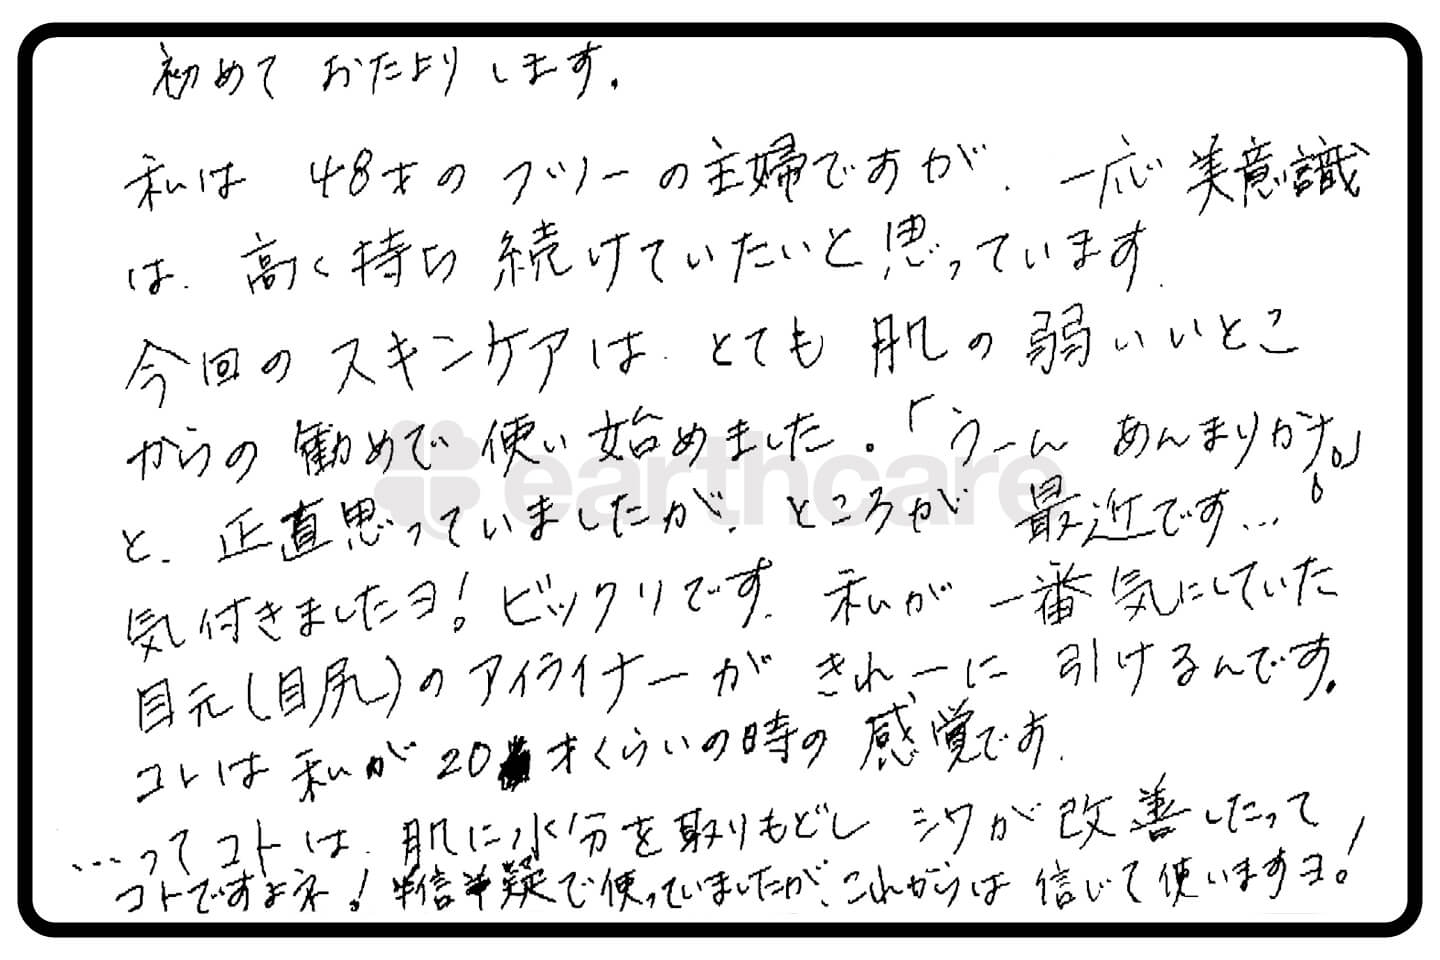 初めて おたよりします。
私は 48才の フツーの主婦ですが、一応 美意識
は、高く持ち 続けていたいと思っています。
今回の スキンケアは、とても 肌の 弱いいとこ
からの 勧めで 使い始めました。「うーん あんまりかナ。」
と、正直思っていましたが、ところが 最近です…
気付きましたヨ！ビックリです。私が 一番 気にしていた
目元(目尻)の アイライナーが きれーに 引けるんです。
コレは 私が 20才くらいの時の 感覚です。
…ってコトは、肌に水分を取りもどし シワが 改善したって
コトですよネ！半信半疑で使っていましたが、これからは 信じて使いますヨ！
earthcare